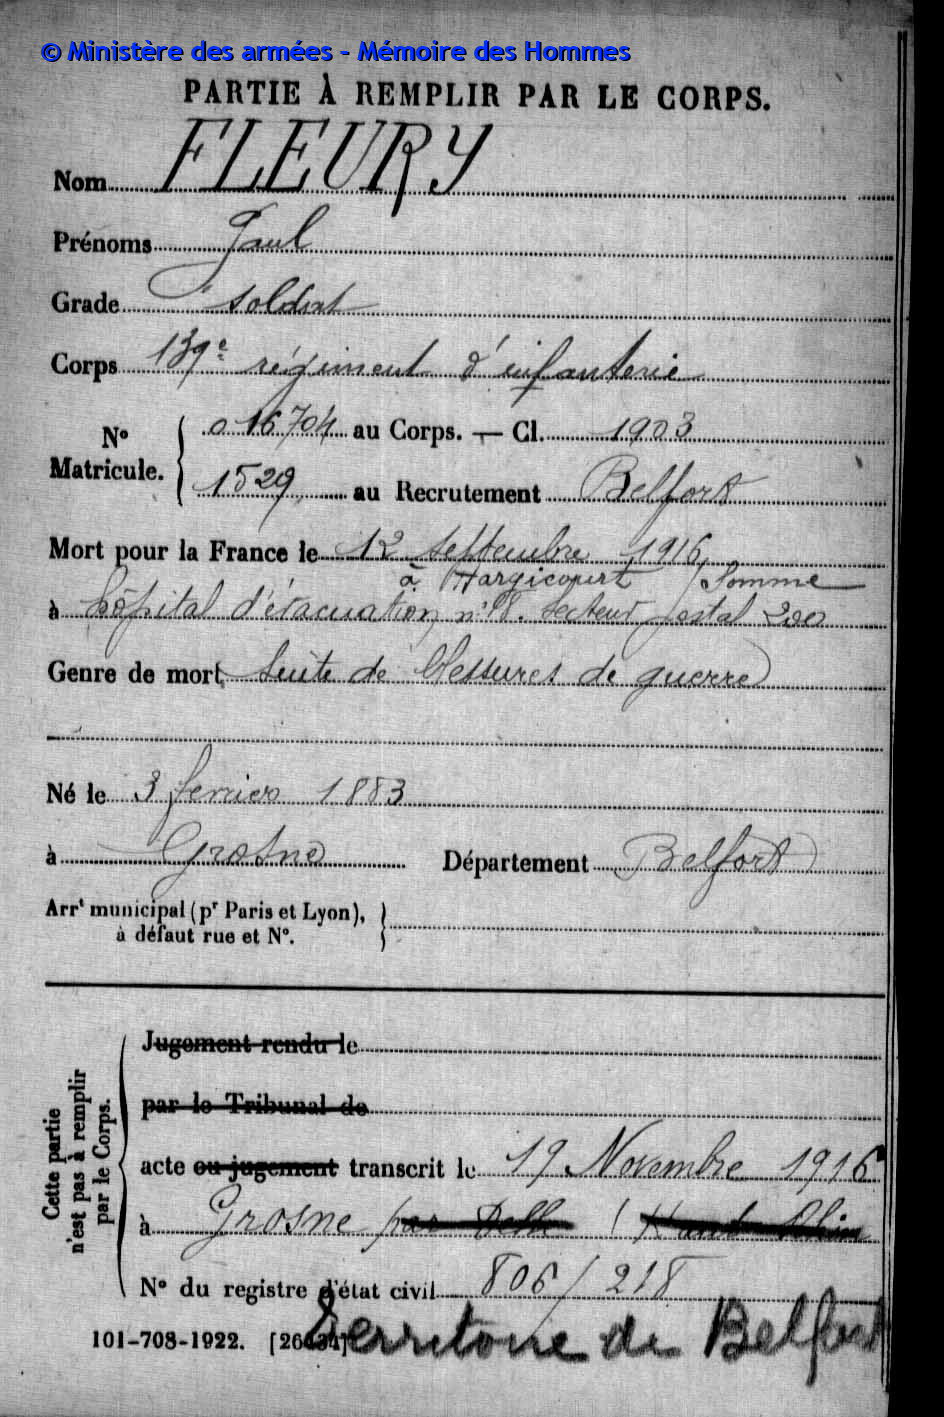 © Ministère des armées - Mémoire des Hommes
PARTIE À REMPLIR PAR LE CORPS.
Nom FLEURY
Prénoms Paul
Grade soldat
Corps 139e régiment d'infanterie
No Matricule. { 016704 au Corps. — Cl. 1903
1529 au Recrutement Belfort
Mort pour la France le 12 Septembre 1916
à Hargicourt / Somme
à hôpital d'évacuation n° 18. secteur postal 200
Genre de mort Suite de blessures de guerre
Né le 3 février 1883
à Grosne Département Belfort
Arrt municipal (pr Paris et Lyon),
à défaut rue et No.
Cette partie n'est pas à remplir par le Corps.
Jugement rendu le
par le Tribunal de
acte ou jugement transcrit le 19 Novembre 1916
à Grosne par Delle (Haut Rhin
No du registre d'état civil 806/218
Territoire de Belfort
101-708-1922. [26434]